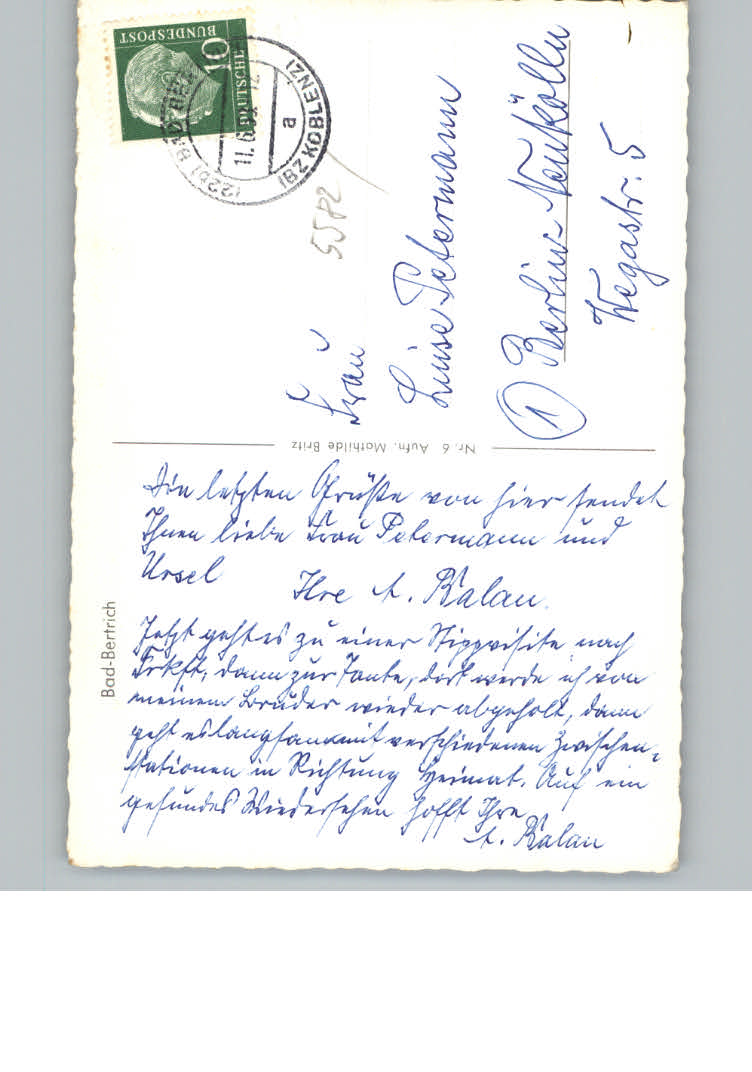 Die letzten Grüße von hier sendet
Ihnen liebe Frau Petermann und
Ursel Ihre A. Kalau.
Jetzt geht es zu einer Stippvisite nach
Frkft, dann zur Tante, dort werde ich von
meinem Bruder wieder abgeholt, dann
geht es langsam mit verschiedenen Zwischen-
stationen in Richtung Heimat. Auf ein
gesundes Wiedersehen hofft Ihre
A. Kalau
Bad-Bertrich
Nr. 6 Aufn. Mathilde Britz
Frau
Luise Petermann
① Berlin-Neukölln
Wegastr. 5
5582
10
DEUTSCHE
BUNDESPOST
(22b) BAD
(BZ KOBLENZ)
a
11.6.